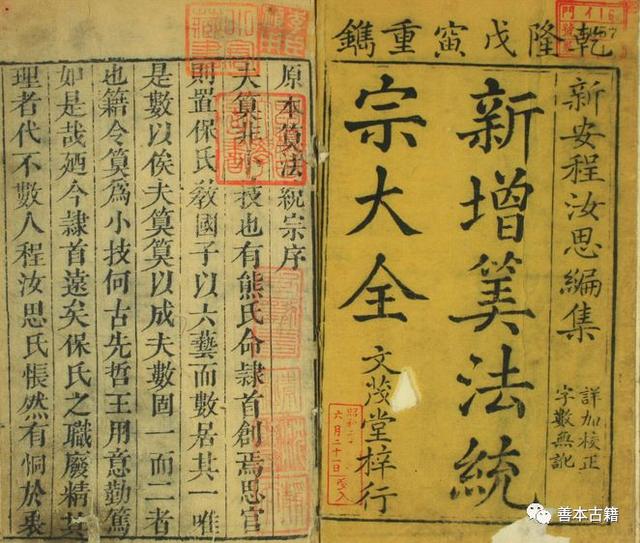 乾隆戊寅重鐫
新安程汝思編集
詳加校正
字數無訛
新增筭法統
宗大全
文茂堂梓行
六月二十一日
原本筭法統宗序
夫筭非技也有熊氏命隸首創焉思官
則置保氏敎國子以六藝而數居其一唯
是數以俟夫筭筭以成夫數固一而二者
也籍令筭爲小技何古先哲王用意勤篤
如是哉廼今隸首遠矣保氏之職廢精其
理者代不數人程汝思氏悵然有恫於衷
善本古籍